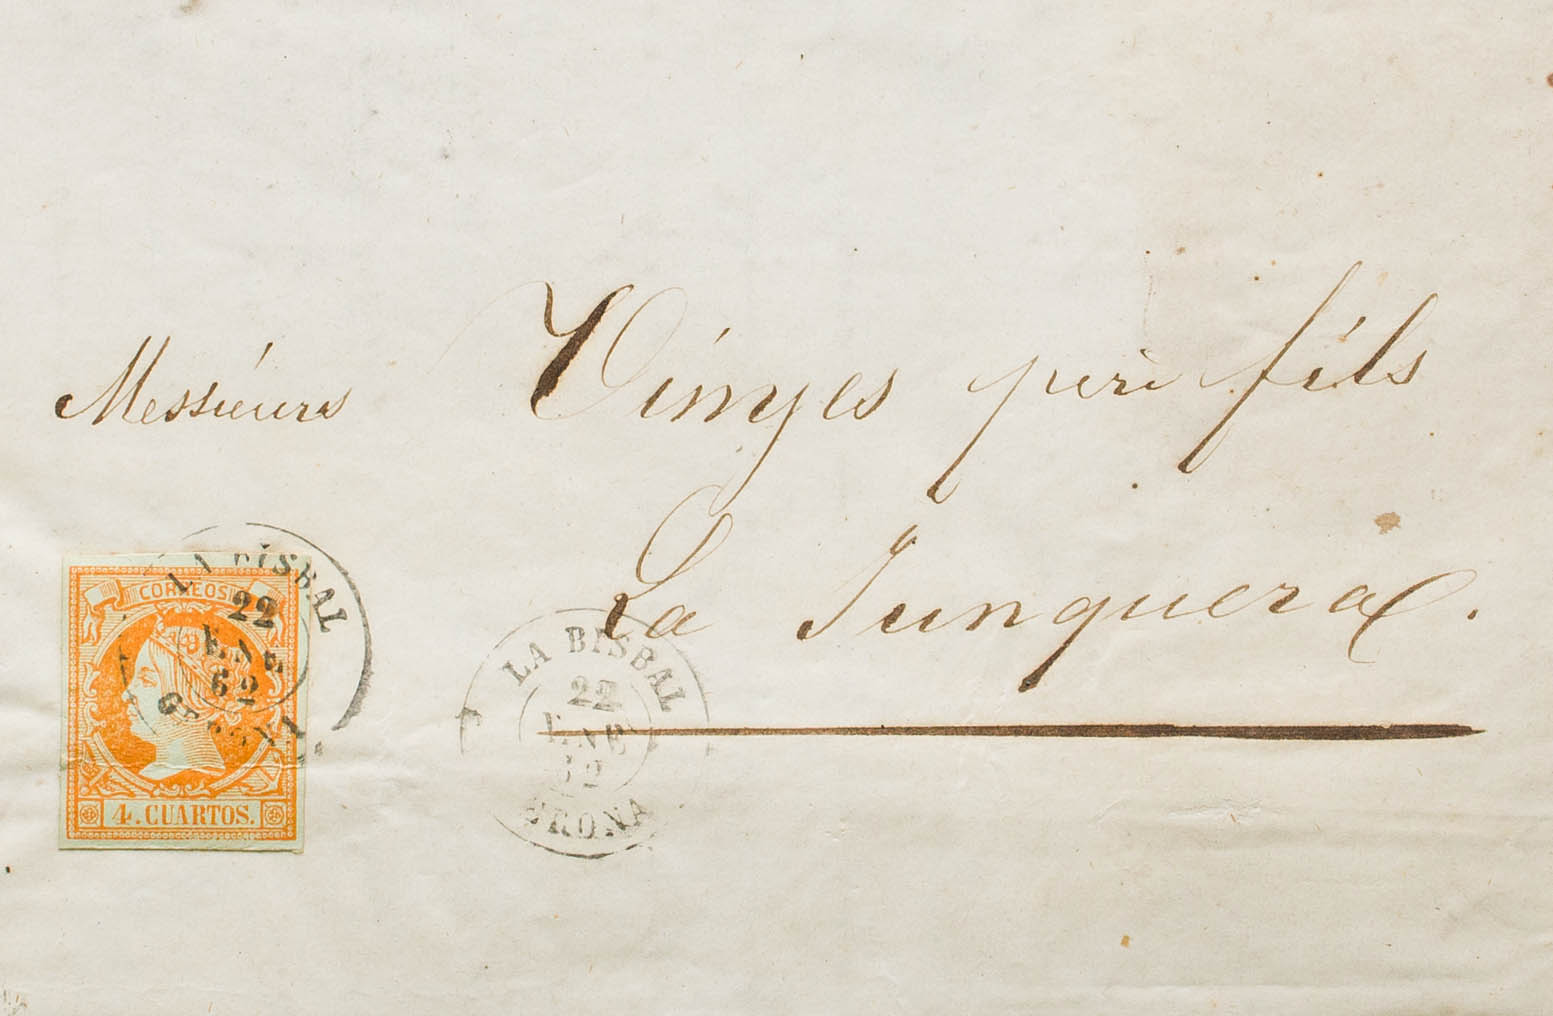 Messieurs Vinyes pére fils
La Junquera.
CORREOS
LA BISBAL
22
ENE
62
GERONA
4. CUARTOS.
LA BISBAL
22
ENE
62
GERONA